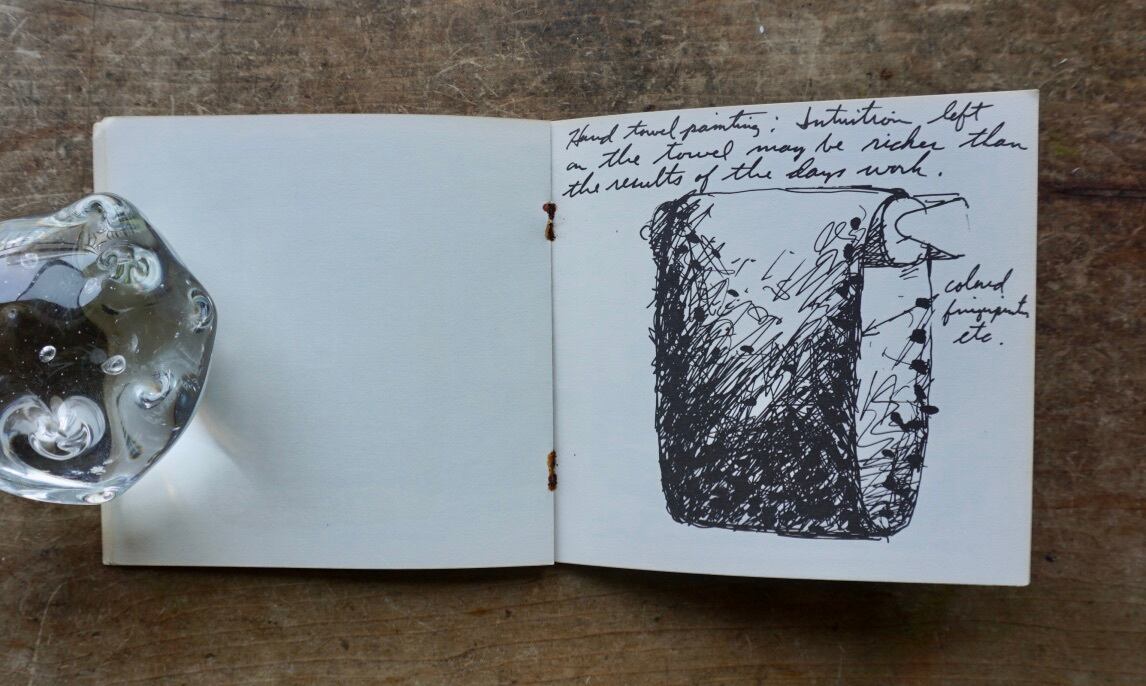 Hand towel painting: Intuition left
on the towel may be richer than
the results of the days work.
colored
fingerprints
etc.